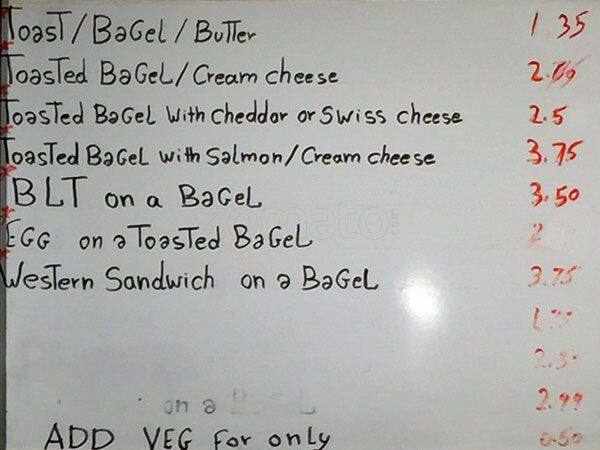 Toast/Bagel/Butter 1.35
Toasted Bagel/Cream cheese
Toasted Bagel with Cheddar or Swiss cheese 2.5
Toasted Bagel with Salmon/Cream cheese 3.75
BLT on a Bagel 3.50
EGG on a Toasted Bagel 2
Western Sandwich on a Bagel 3.75
on a Bagel 2.99
ADD VEG for only 0.50
zomato